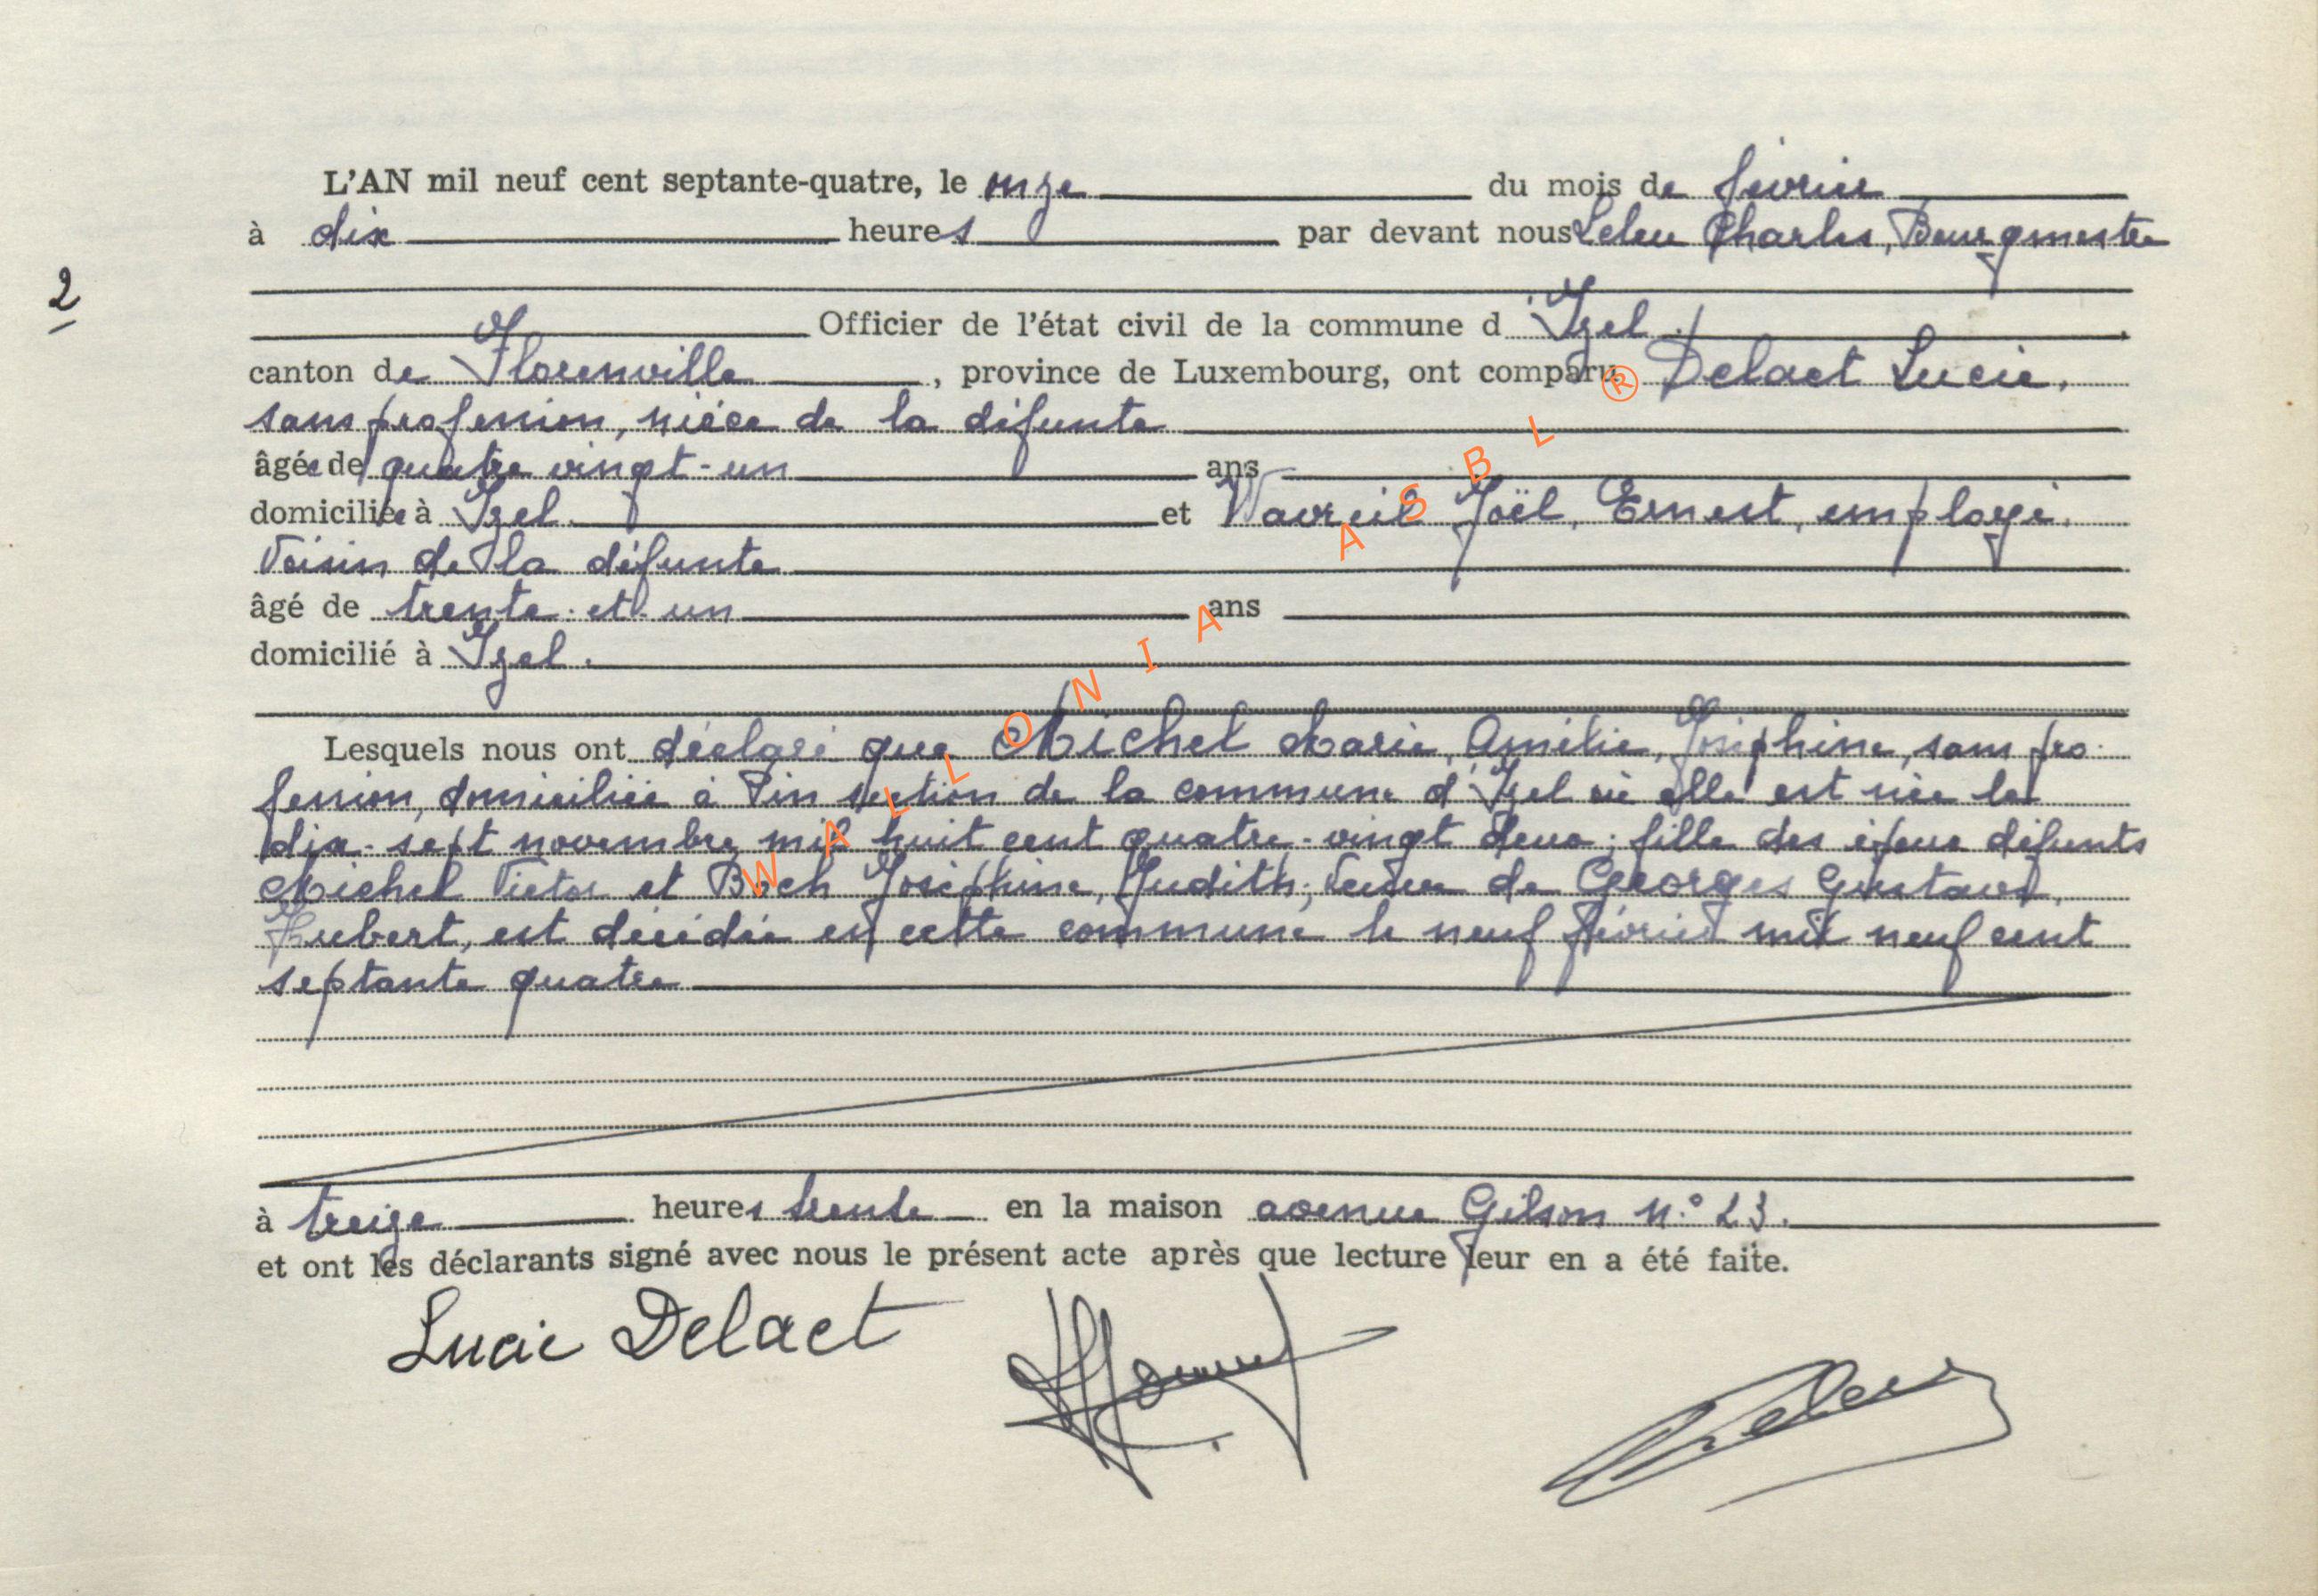 L'AN mil neuf cent septante-quatre, le onze du mois de février
à dix heures par devant nous Leleu Charles, Bourgmestre
2
Officier de l'état civil de la commune d'Izel.
canton de Florenville, province de Luxembourg, ont comparu Delaet Lucie,
sans profession, nièce de la défunte
âgée de quatre vingt-un ans
domiciliée à Izel et Wavreil Joël, Ernest, employé,
voisin de la défunte
âgé de trente-et-un ans
domicilié à Izel.
Lesquels nous ont déclaré que Michel Marie, Amélie, Joséphine, sans pro-
fession, domiciliée à Pin section de la commune d'Izel où elle est née le
dix-sept novembre mil huit cent quatre-vingt deux; fille des époux défunts
Michel Victor et Boch Joséphine, Judith; veuve de Georges Gustave,
Hubert, est décédée en cette commune le neuf février mil neuf cent
septante quatre
à treize heures trente en la maison avenue Gilson n° 23.
et ont les déclarants signé avec nous le présent acte après que lecture leur en a été faite.
Lucie Delaet
Leleu
WALLONIA ASBL ®